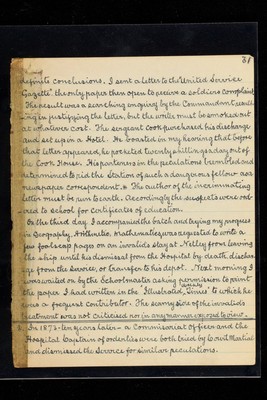 31
definite conclusions. I sent a letter to the "United Service
Gazette" the only paper then open to receive a soldiers complaint
The result was a searching enquiry by the Commandant result-
ing in justifying the letter, but the writer must be smoked out
at whatever cost. The sergeant cook purchased his discharge
and set up in a Hotel. He boasted in my hearing that before
that letter appeared, he pocketed twenty shillings a day out of
the Cook House. His partners in the peculations trembled and
determined to rid the Station of such a dangerous fellow as a
newspaper correspondent. The author of the incriminating
letter must be run to earth. Accordingly the suspects were ord-
ered to school for Certificates of education.
On the third day I accompanied the batch and taking my progress
in Geography, Arithmetic, Mathematics was requested to write a
few foolscap pages on an invalids stay at Netley from leaving
the ship until his dismissal from the Hospital by death, dischar-
ge from the Service, or transfer to his depot. Next morning I
was waited on by the Schoolmaster asking permission to print
the paper I had written in the "Illustrated Times" to which he
was a frequent contributor. The seamy side of the invalids
treatment was not criticised nor in any manner exposed to view.
In 1873 - ten years later - a Commissariat officer and the
Hospital Captain of orderlies were both tried by Court Martial
and dismissed the Service for similar peculations.